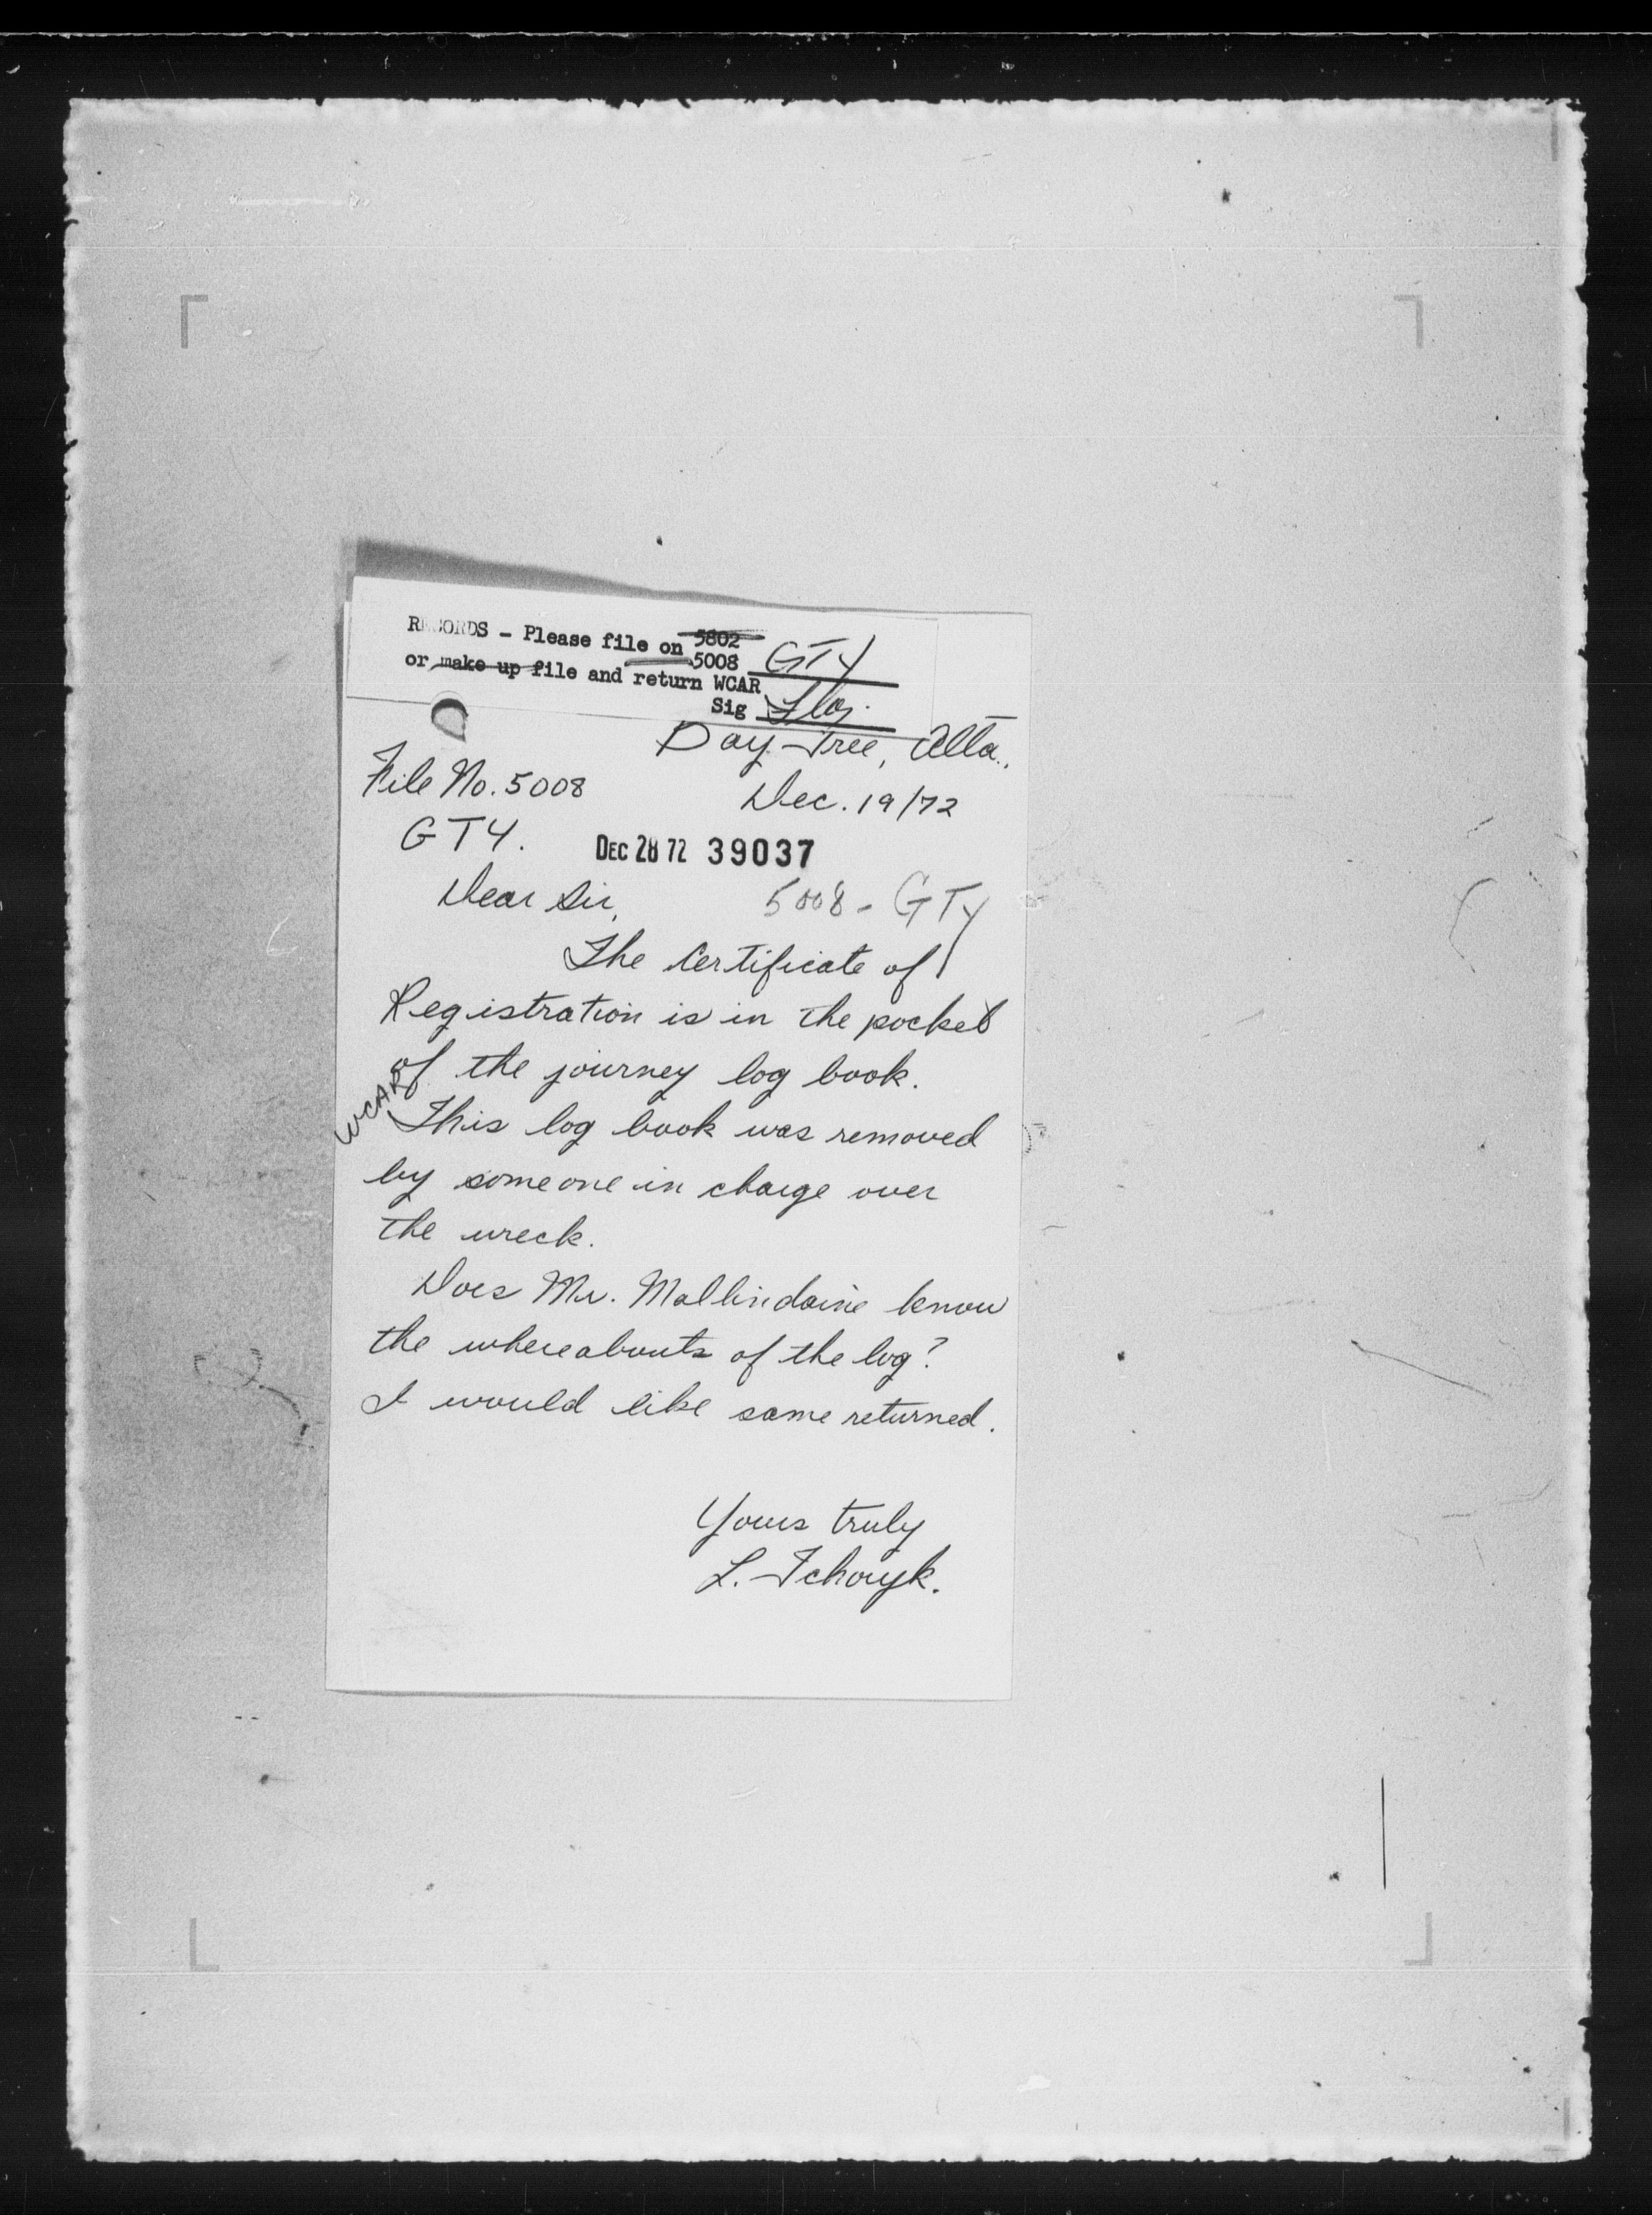 RECORDS - Please file on 5802
5008 GTY
or make up file and return WCAR
Sig
Day Tree, Alta.,
File No. 5008
Dec. 19/72
GTY.
DEC 28 72 39037
Dear Sir,
5008 - GTY
The Certificate of
Registration is in the pocket
of the journey log book.
WCAR
This log book was removed
by someone in charge over
the wreck.
Does Mr. Mallindaine know
the whereabouts of the log?
I would like same returned.
Yours truly
L.